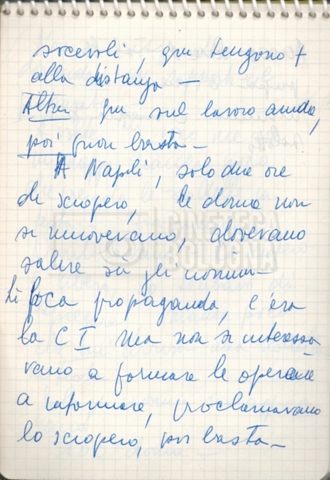 socevoli, qui tengono +
alla distanza —
Altri qui sul lavoro anche,
poi fuori basta —
A Napoli, solo due ore
di sciopero, le donne non
si muovevano, dovevano
salire su gli uomini —
Li poca propaganda, c'era
la C I ma non si interessa
vano a formare le operaie
a informare, proclamavano
lo sciopero, poi basta —
CINETECA
BOLOGNA